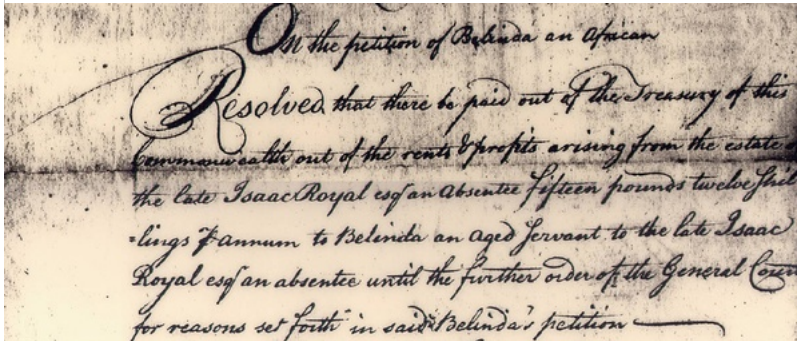 On the petition of Belinda an African
Resolved that there be paid out of the Treasury of this
Commonwealth out of the rents & profits arising from the estate of
the late Isaac Royal esqr an absentee fifteen pounds twelve shil
-lings ⅌ annum to Belinda an aged servant to the late Isaac
Royal esqr an absentee until the further order of the General Court
for reasons set forth in said Belinda's petition